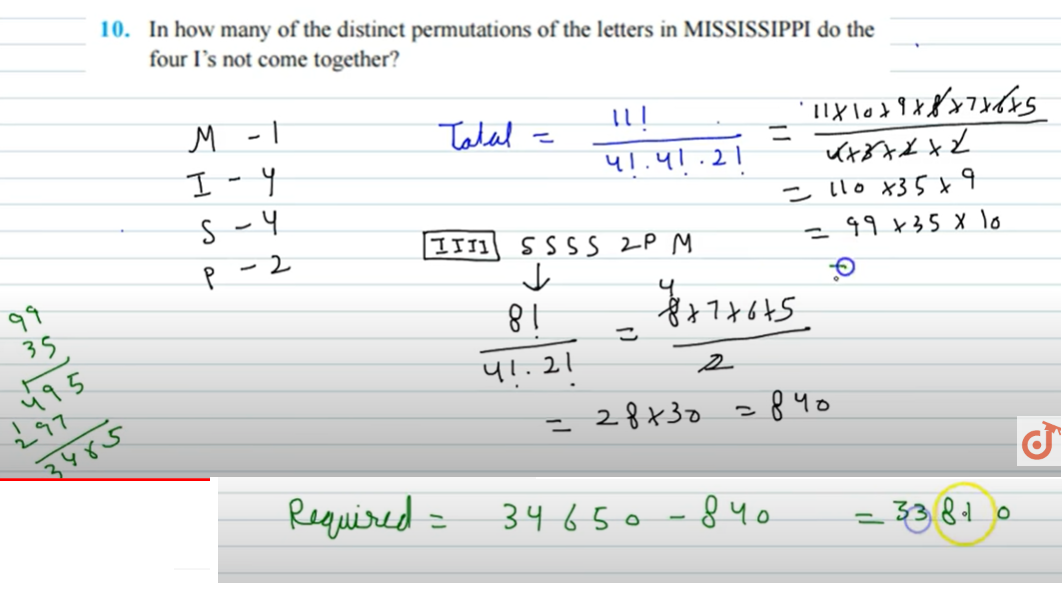 10. In how many of the distinct permutations of the letters in MISSISSIPPI do the
four I's not come together?
M - 1
I - 4
S - 4
P - 2
Total = 11! / 4!.4!.2! = 11×10×9×8×7×6×5 / 4×3×2×2
= 110×35×9
= 99×35×10
IIII SSSS 2P M
↓
8! / 4!.2! = 4 8×7×6×5 / 2
= 28×30 = 840
99
35
495
1
297
3465
Required = 34650 - 840 = 33810